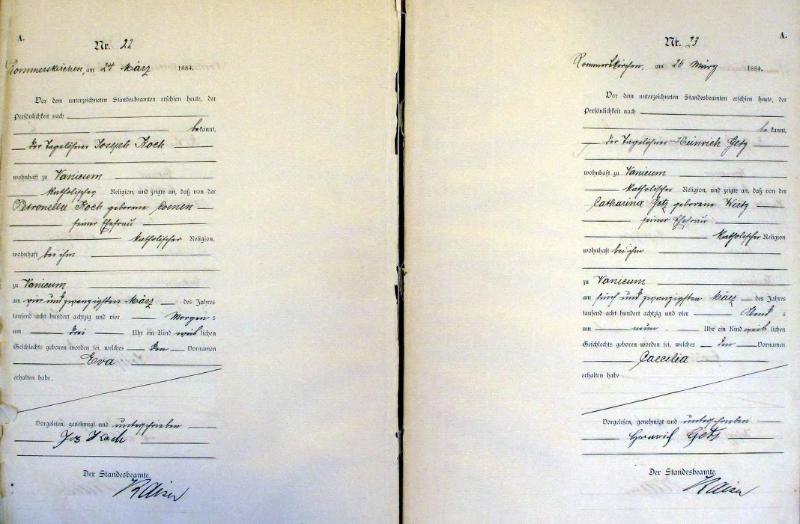 A.
Nr. 22
Rommerskirchen, am 24 März 1884.
Vor dem unterzeichneten Standesbeamten erschien heute, der
Persönlichkeit nach
bekannt,
der Tagelöhner Joseph Koch
wohnhaft zu Vanicum
katholischer Religion, und zeigte an, daß von der
Petronella Koch geborene Coenen
seiner Ehefrau
katholischer Religion,
wohnhaft bei ihm
zu Vanicum
am vier und zwanzigsten März des Jahres
tausend acht hundert achtzig und vier Morgens
um drei Uhr ein Kind weiblichen
Geschlechts geboren worden sei, welches den Vornamen
Eva
erhalten habe.
Vorgelesen, genehmigt und unterschrieben
Jos Koch
Der Standesbeamte.
Kaiser
A.
Nr. 23
Rommerskirchen, am 26 März 1884.
Vor dem unterzeichneten Standesbeamten erschien heute, der
Persönlichkeit nach
bekannt,
der Tagelöhner Heinrich Getz
wohnhaft zu Vanicum
katholischer Religion, und zeigte an, daß von der
Catharina Getz geborene
seiner Ehefrau
katholischer Religion
wohnhaft bei ihm
zu Vanicum
am fünf und zwanzigsten März des Jahres
tausend acht hundert achtzig und vier Abend
um neun Uhr ein Kind weiblichen
Geschlechts geboren worden sei, welches den Vornamen
Caecilia
erhalten habe
Vorgelesen, genehmigt und unterschrieben
Heinrich Götz
Der Standesbeamte.
Kaiser